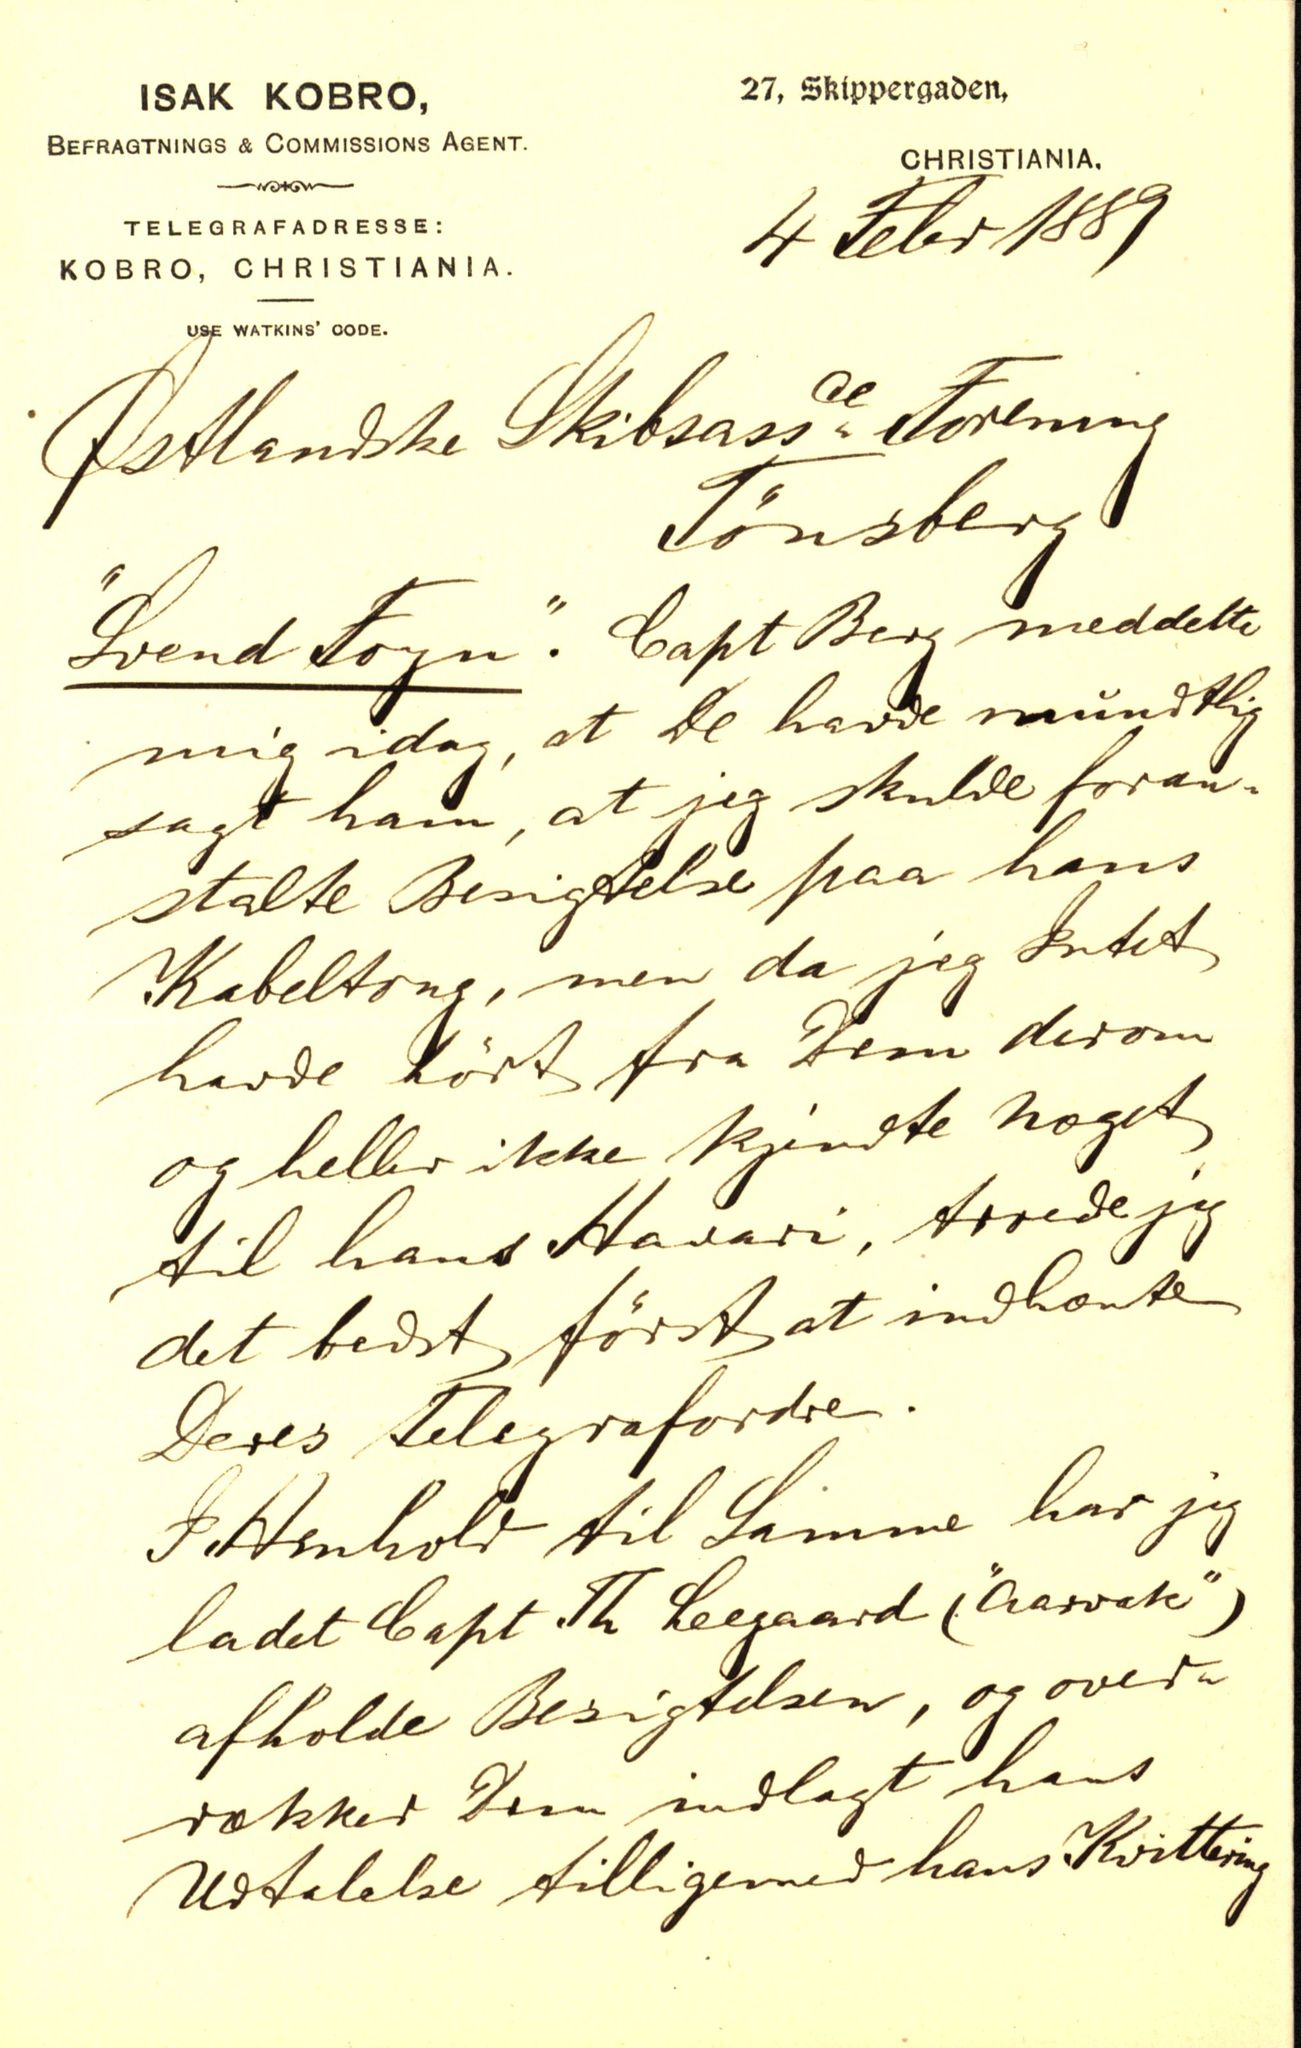 ISAK KOBRO,
BEFRAGTNINGS & COMMISSIONS AGENT.
TELEGRAFADRESSE:
KOBRO, CHRISTIANIA.
USE WATKINS' CODE.
27, Skippergaden,
CHRISTIANIA.
4 Febr 1889
Østlandske Skibsassce Forening
Tönsberg
"Svend Foyn". Capt Berg meddelte
mig idag, at De havde mundtlig
sagt ham, at jeg skulde foran-
stalte Besigtelse paa hans
Kabeltoug, men da jeg Intet
havde hört fra Dem derom
og heller ikke kjendte noget
til hans Havari, troede jeg
det bedst först at indhente
Deres Telegrafordre.
I Henhold til Samme har jeg
ladet Capt Th Leegaard ("Aarvak")
afholde Besigtelsen, og over-
rækker Dem indlagt hans
Udtalelse tilligemed hans Kvittering